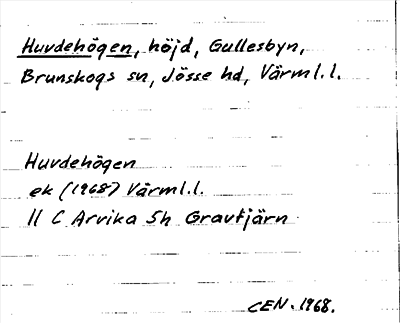 Huvdehögen, höjd, Gullesbyn,
Brunskogs sn, Jösse hd, Värml.l.
Huvdehögen
ek (1968) Värml.l.
11 C Arvika 5h Gravtjärn
CEN. 1968.